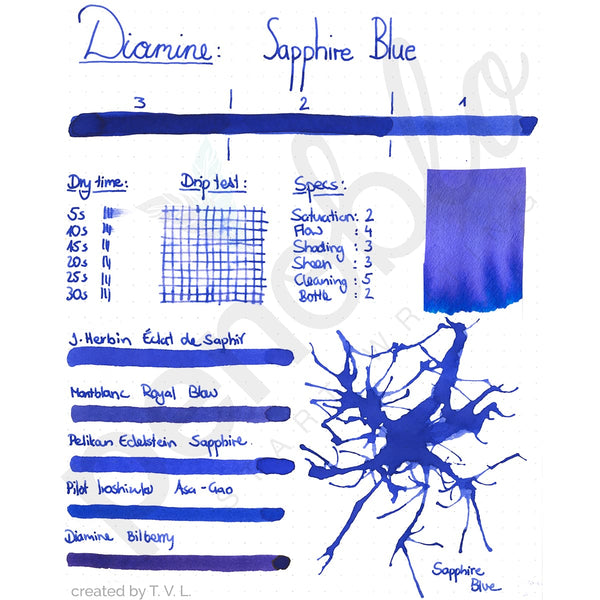 Diamine: Sapphire Blue
3 | 2 | 1
Dry time: Drip test: Specs:
5s
10s
15s
20s
25s
30s
Satuation: 2
Flow : 4
Shading : 3
Sheen : 3
Cleaning : 5
Bottle : 2
J. Herbin Éclat de Saphir
Montblanc Royal Blau
Pelikan Edelstein Sapphire
Pilot Iroshizuku Asa-Gao
Diamine Bilberry
Sapphire
Blue
created by T. V. L.
penoblo